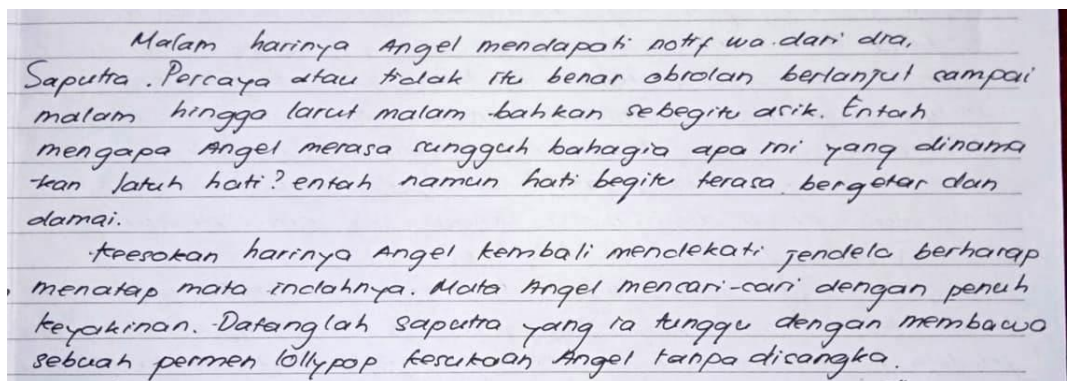 Malam harinya Angel mendapati notif wa dari dra,
Saputra. Percaya atau tidak itu benar obrolan berlanjut sampai
malam hingga larut malam bahkan sebegitu asik. Entah
mengapa Angel merasa sungguh bahagia apa ini yang dinama
-kan jatuh hati? entah namun hati begitu terasa bergetar dan
damai.
Keesokan harinya Angel kembali mendekati jendela berharap
menatap mata indahnya. Mata Angel mencari-cari dengan penuh
keyakinan. Datanglah saputra yang ia tunggu dengan membawa
sebuah permen lollypop kesukaan Angel tanpa disangka.